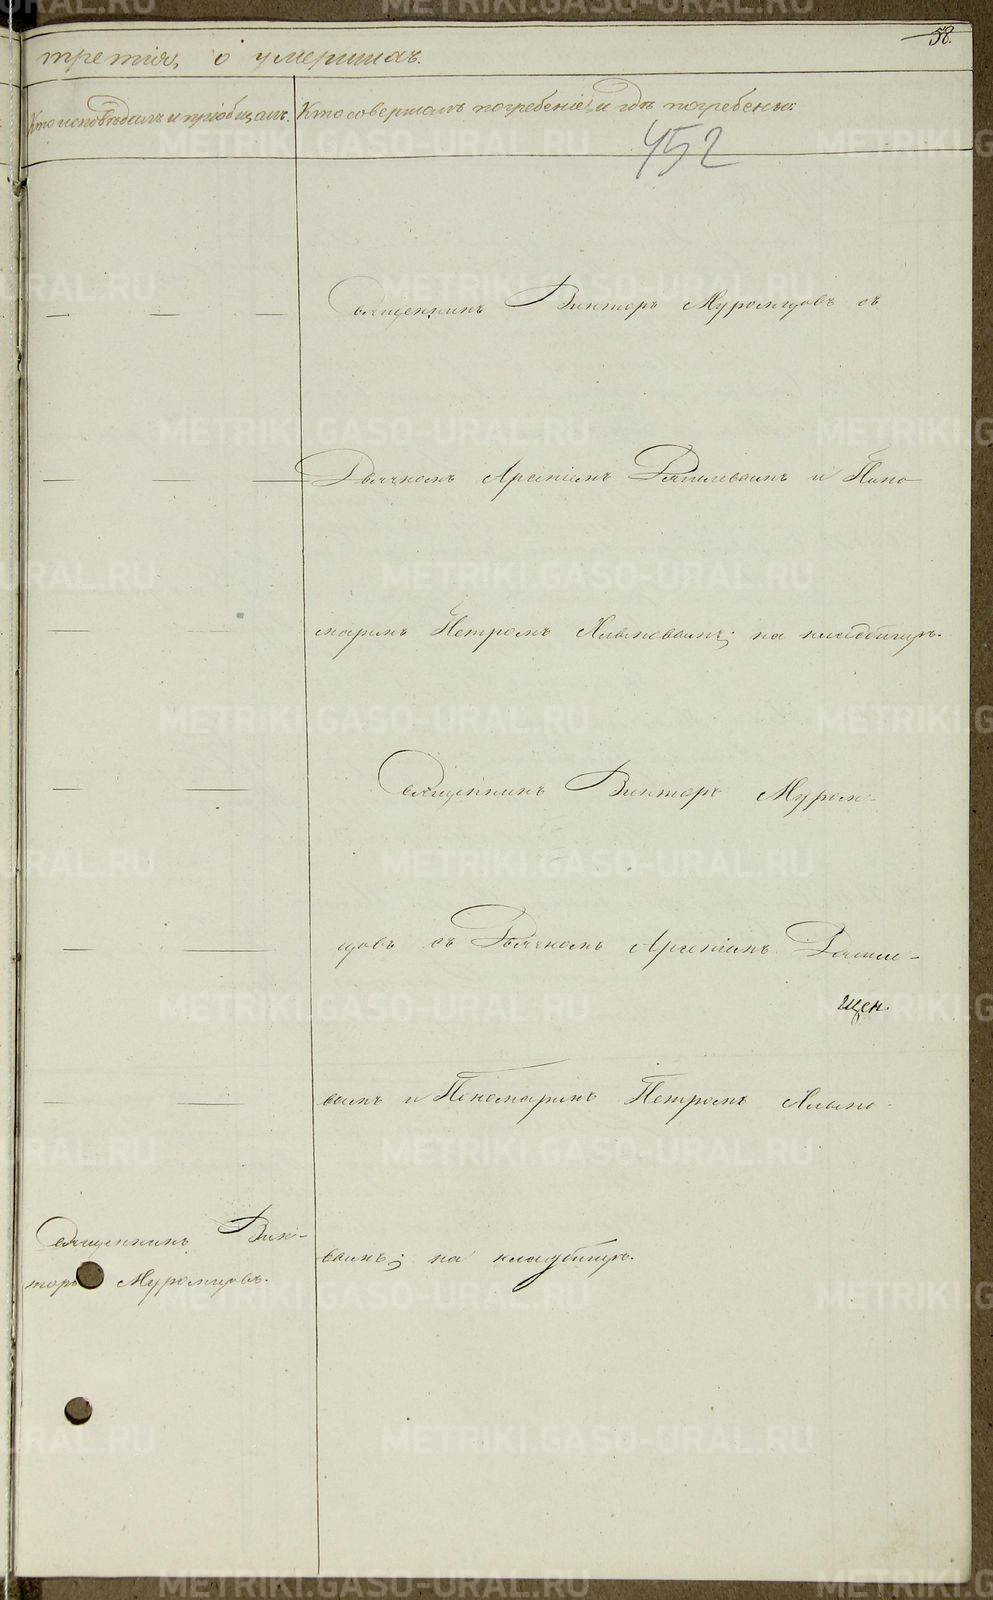 58.
третія, о умершихъ.
Кто исповѣдалъ и пріобщалъ.
Кто совершалъ погребеніе, и гдѣ погребены:
452
Священникъ Викторъ Муромцовъ съ
Дьячкомъ Арсеніемъ и Поно
маремъ Петромъ на кладбищѣ.
Священникъ Викторъ Муром-
цовъ съ Дьячкомъ Арсеніемъ
щен.
вымъ и Пономаремъ Петромъ
Священникъ Вик-
торъ Муромцовъ.
вымъ; на кладбищѣ.
METRIKI.GASO-URAL.RU